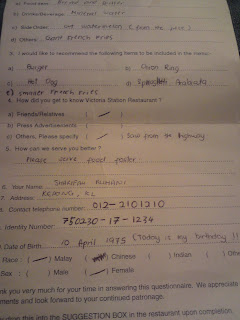 a) Food Item: Bread and Butter
b) Drinks/Beverage: Mineral Water
c) Side Order:
d) Others: Giant french fries
3. I would like to recommend the following items to be included in the menu:
a) Burger c) Onion Ring
b) Hot Dog d) Arabiata
e) smaller french fries
4. How did you get to know Victoria Station Restaurant?
a) Friends/Relatives ( / )
b) Press Advertisements ( )
c) Others, Please specify ( / ) Saw from the highway
5. How can we serve you better?
Please serve food faster.
6. Your Name:
7. Address: KEPONG, KL
8. Contact telephone number: 012-2101210
9. Identity Number: 750230-17-1234
Date of Birth: 10 April 1975 (Today is my birthday!!
Race: ( / ) Malay ( ) Chinese ( ) Indian ( ) Othe
Sex: ( ) Male ( / ) Female
nk you very much for your time in answering this questionnaire. We appreciate
ments and look forward to your continued patronage.
drop this into the SUGGESTION BOX in the restaurant upon completion.